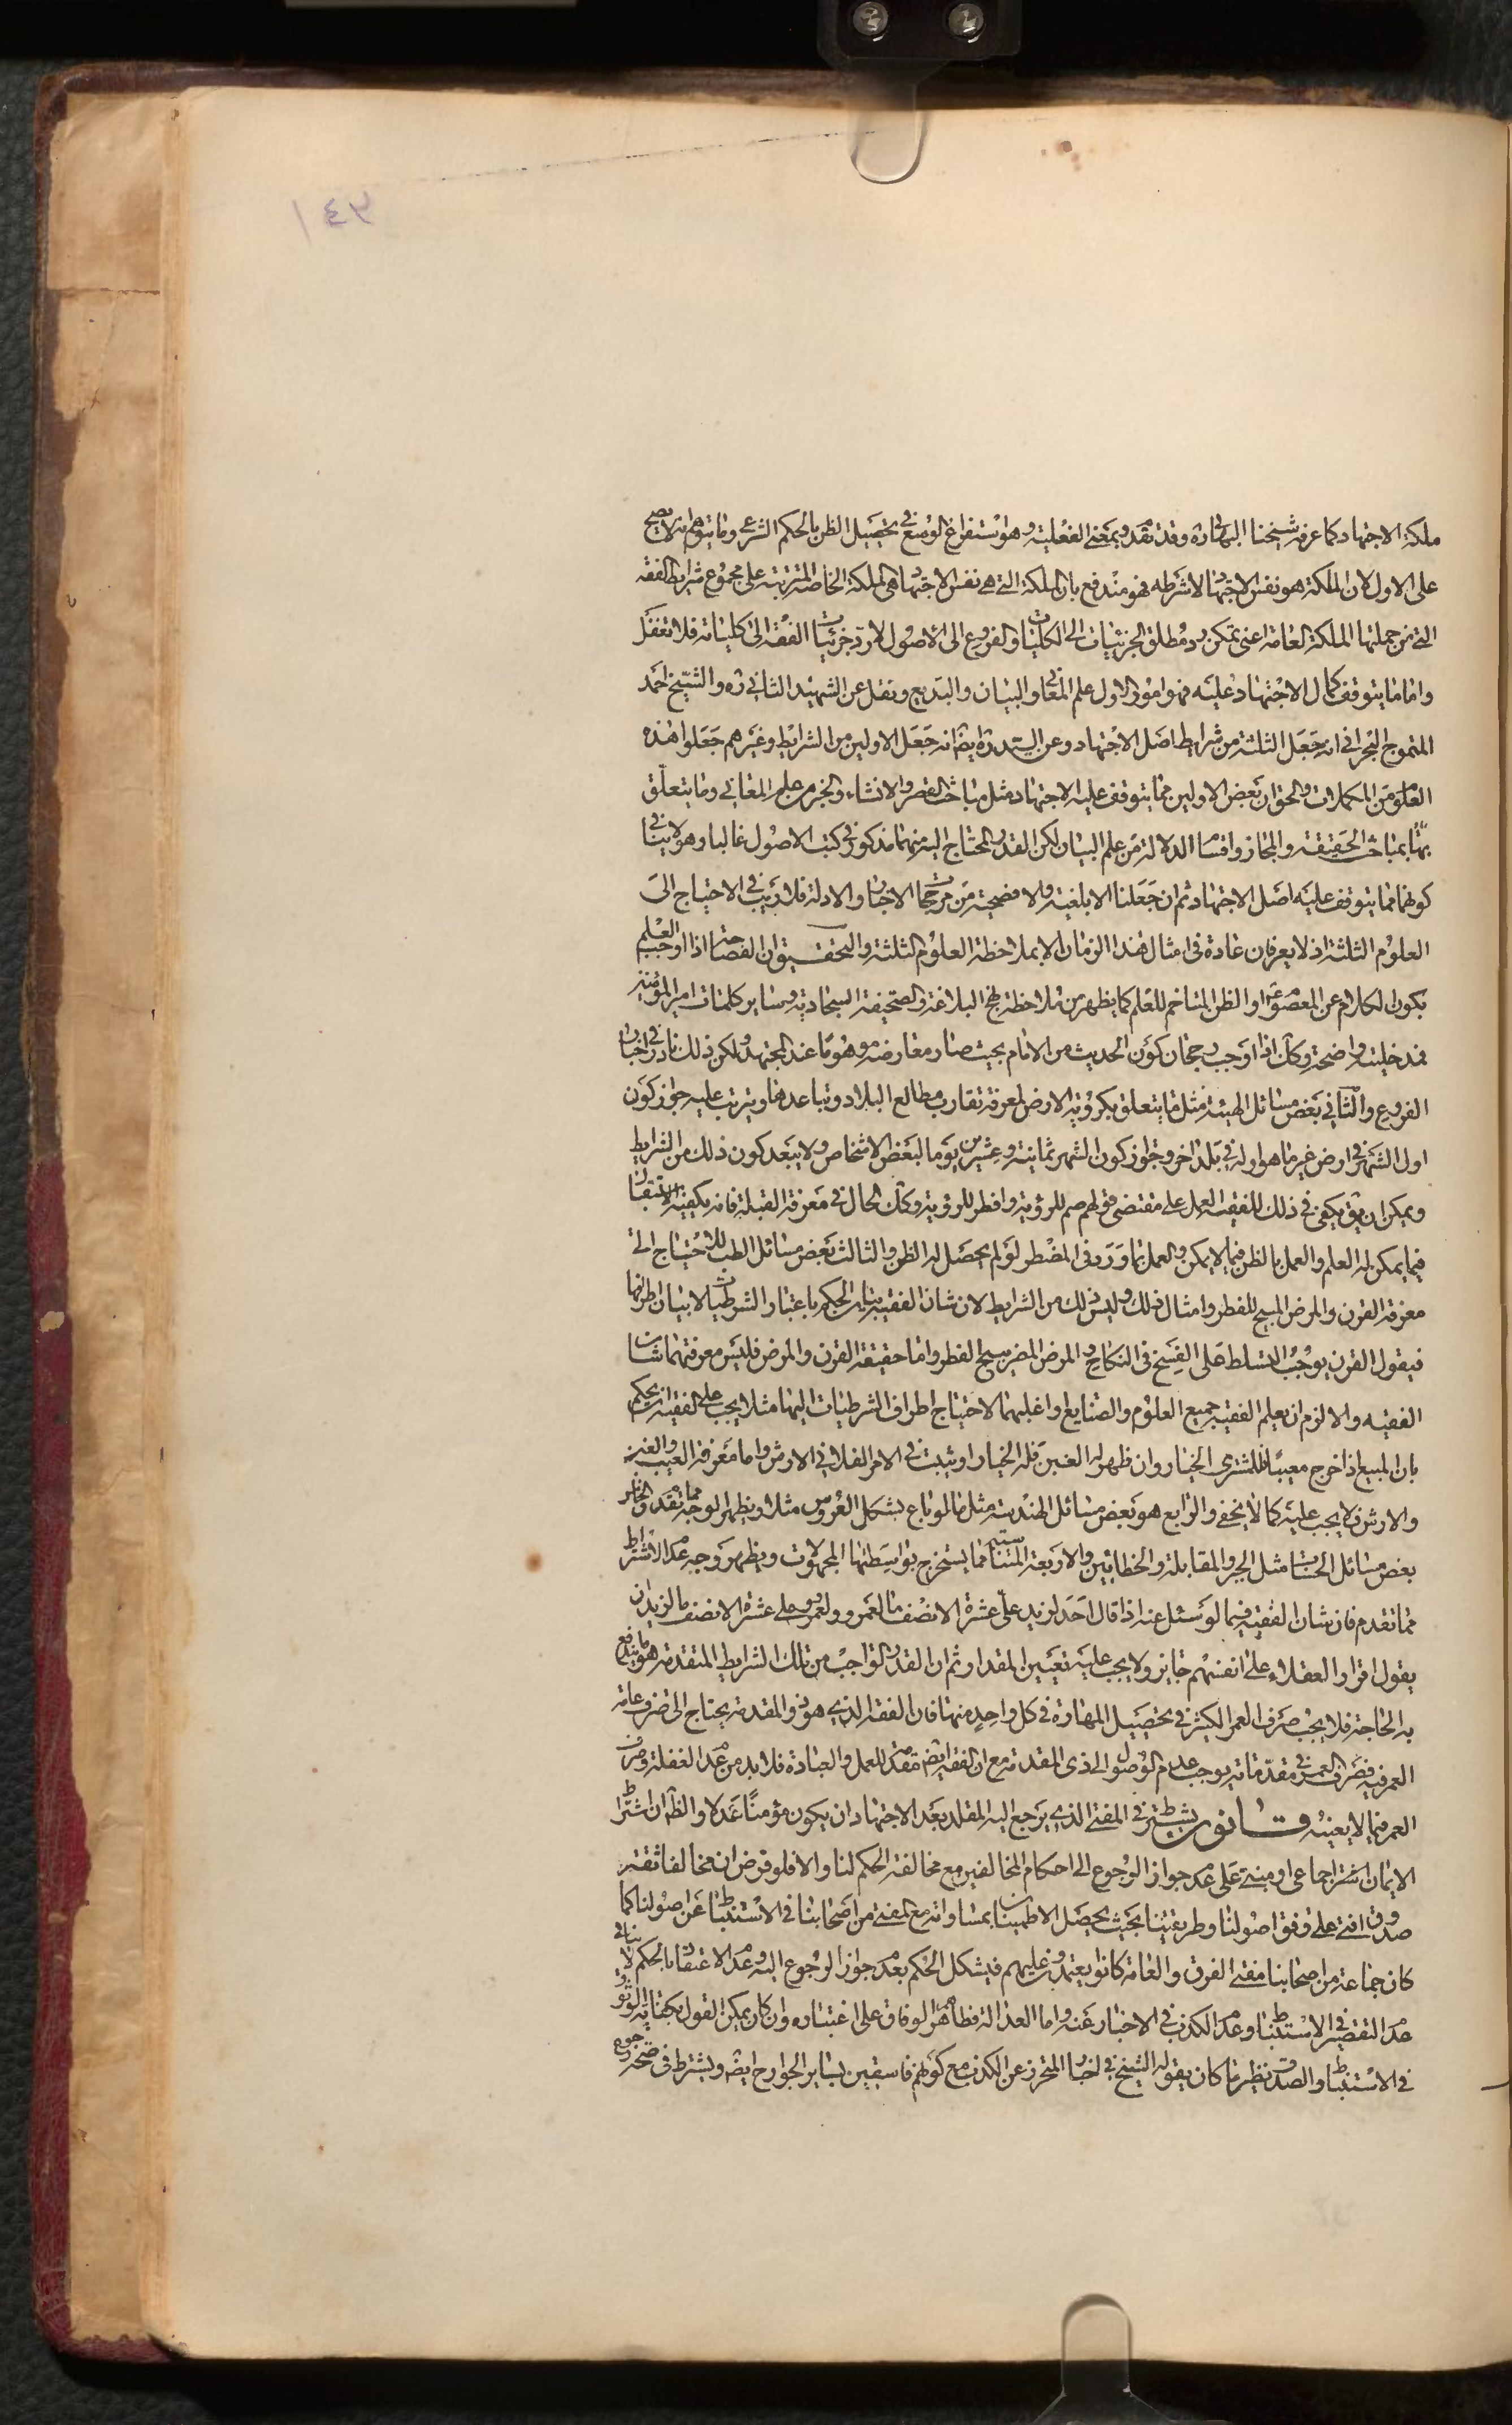 ١٤٣
ملكة الاجتهاد كما عرفه شيخنا البهائي ره وقد تقدم وبمعنى الفعلية وهو استفراغ الوسع في تحصيل الظن بالحكم الشرعي وما يتوهم انه لا يصح
على الاول لان الملكة هو نفس الاجتهاد لا شرطه فهو مندفع بان الملكة التي هي نفس الاجتهاد هي الملكة الخاصة المترتبة على مجموع شرايط الفقه
التي من جملتها الملكة العامة اعنى تمكن رد مطلق الجزئيات الى الكليات والفروع الى الاصول لا رد جزئيات الفقه الى كلياته فلا تغفل
واما ما يتوقف كمال الاجتهاد عليه فهو امور الاول علم المعاني والبيان والبديع ونقل عن الشهيد الثاني ره والشيخ احمد
المتموج البحراني انه جعل الثلثة من شرايط اصل الاجتهاد وعن السيد ره ايضا انه جعل الاولين من الشرايط وغيرهم جعلوا هذه
العلوم من المكملات والحق ان بعض الاولين مما يتوقف عليه الاجتهاد مثل مباحث القصر والانشاء والخبر من علم المعاني وما يتعلق
بمباحث الحقيقة والمجاز واقسام الدلالة من علم البيان لكن القدر المحتاج اليه منهما مذكور في كتب الاصول غالبا وهو لا ينافي
كونهما مما يتوقف عليه اصل الاجتهاد ثم ان جعلنا الابلغية والافصحية من مرجحات الاخبار والادلة فلا ريب في الاحتياج الى
العلوم الثلثة اذ لا يعرفان عادة في امثال هذا الزمان الا بملاحظة العلوم الثلثة والتحقيق ان الفصاحة اذا اوجب العلم
بكون الكلام عن المعصوم ع او الظن المتاخم للعلم كما يظهر من ملاحظة نهج البلاغة والصحيفة السجادية وساير كلمات امير المؤمنين
فمدخليته واضحة وكك اذا اوجب رجحان كون الحديث من الامام بحيث صار معارضه موهوما عند المجتهد ولكن ذلك نادر في اخبار
الفروع والثاني بعض مسائل الهيئة مثل ما يتعلق بكروية الارض لمعرفة تقارب مطالع البلاد وتباعدها ويترتب عليه جواز كون
اول الشهر في ارض غير ما هو اوله في بلد اخر وجواز كون الشهر ثمانية وعشرين يوما لبعض الاشخاص ولا يبعد كون ذلك من الشرايط
ويمكن ان يق يكفى في ذلك للفقيه العمل على مقتضى قولهم صم للرؤية وافطر للرؤية وكك الحال في معرفة القبلة فانه يكفيه الاستقبال
فيما يمكن له العلم والعمل بالظن فيما لا يمكن والعمل بما ورد في المضطر لو لم يحصل له الظن والثالث بعض مسائل الطب للاحتياج الى
معرفة القرن والمرض المبيح للفطر وامثال ذلك وليس ذلك من الشرايط لان شان الفقيه بيان الحكم باعتبار الشرطيات لا بيان اطرافها
فيقول القرن يوجب التسلط على الفسخ في النكاح والمرض المضر يبيح الفطر واما حقيقة القرن والمرض فليس معرفتهما شان
الفقيه والا لزم ان يعلم الفقيه جميع العلوم والصنايع او اغلبهما لاحتياج اطراف الشرطيات اليها مثلا يجب على الفقيه ان يحكم
بان المبيع اذا خرج معيبا فللمشترى الخيار وان ظهر له الغبن فله الخيار او يثبت في الامر الفلاني الارش واما معرفة العيب والغبن
والارش فلا يجب عليه كما لا يخفى والرابع هو بعض مسائل الهندسة مثل ما لو باع بشكل العروس مثلا ويظهر لوجه مما تقدم والخامس
بعض مسائل الحساب مثل الجبر والمقابلة والخطائين والاربعة المتناسبة مما يستخرج بواسطتها المجهولات ويظهر وجه عدم الاشتراط
مما تقدم فان شان الفقيه فيما لو سئل عنه اذا قال احد لزيد علي عشرة الا نصف ما لعمرو ولعمرو علي عشرة الا نصف ما لزيد ان
يقول اقرار العقلاء على انفسهم جايز ولا يجب عليه تعيين المقدار ثم ان القدر الواجب من تلك الشرايط المتقدمة هو ما يندفع
به الحاجة فلا يجب صرف العمر الكثير في تحصيل المهارة في كل واحد منها فان الفقه الذي هو ذو المقدمة يحتاج الى صرف عامة
العمر فيه فصرف العمر في مقدماته يوجب عدم الوصول الى ذى المقدمة مع ان الفقه ايضا مقدمة للعمل والعبادة فلا بد من عدم الغفلة وصرف
العمر فيما لا يعنيه قانون يشترط في المفتي الذي يرجع اليه المقلد بعد الاجتهاد ان يكون مؤمنا عدلا والظاهر ان اشتراط
الايمان اشتراط اجماعي او مبني على عدم جواز الرجوع الى احكام المخالفين مع مخالفة الحكم لنا والا فلو فرض ان مخالفا ثقة
صدوق افتى على وفق اصولنا وطريقتنا بحيث يحصل الاطمينان بمساواته مع المفتي من اصحابنا في الاستنباط عن اصولنا كما
كان جماعة من اصحابنا مفتى الفرق والعامة كانوا يعتمدون عليهم فيشكل الحكم بعدم جواز الرجوع اليه وعدم الاعتقاد بالحكم لا ينافي
عدم التقصير في الاستنباط وعدم الكذب في الاخبار عنه واما العدالة فظاهر الوفاق على اعتباره وان كان يمكن القول بكفاية الوثوق
في الاستنباط والصدق نظير ما كان يقوله الشيخ في اخبار المتحرز عن الكذب مع كونهم فاسقين بساير الجوارح ايضا ويشترط في صحة رجوع